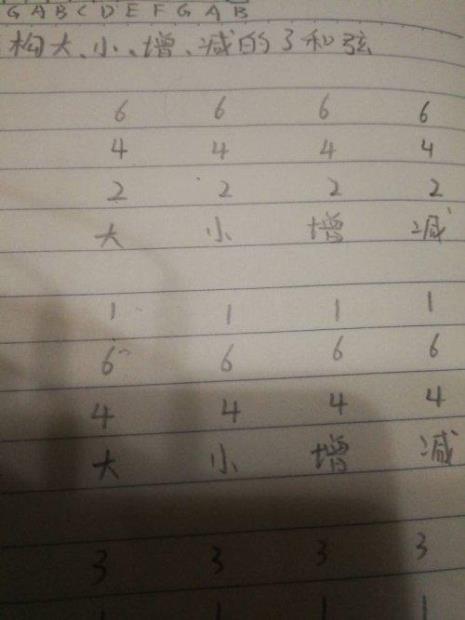 G A B C D E F G A B
构大、小、增、减的3和弦
6 6 6 6
4 4 4 4
2 2 2 2
大 小 增 减
1 1 1 1
6 6 6 6
4 4 4 4
大 小 增 减
3 3 3 3